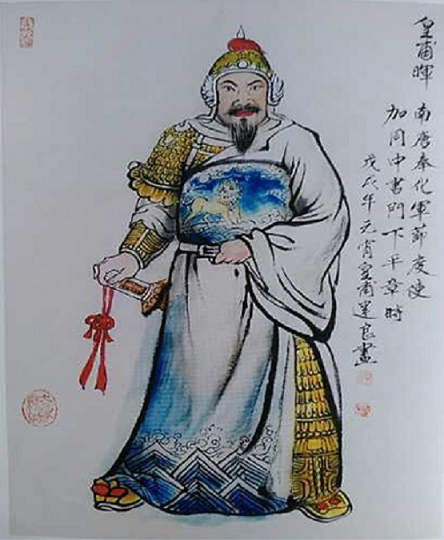 皇甫暉 南唐奉化軍節度使
加同中書門下平章時
戊戌年元宵皇甫運良畫